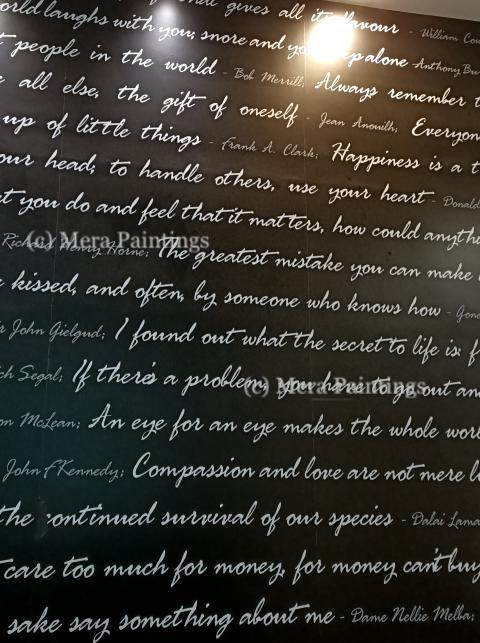 that gives all its flavour - William Cow
orld laughs with you; snore and you sleep alone - Anthony Bu
t people in the world - Bob Merrill; Always remember t
all else, the gift of oneself - Jean Anouilh; Everyon
up of little things - Frank A. Clark; Happiness is a t
our head; to handle others, use your heart - Donald
t you do and feel that it matters, how could anythi
Richard Henry Horne; The greatest mistake you can make
(c) Mera Paintings
kissed, and often, by someone who knows how - Gone
r John Gielgud; I found out what the secret to life is: f
ch Segal; If there's a problem, you have to go out an
(c) Mera Paintings
on McLean; An eye for an eye makes the whole worl
John F Kennedy; Compassion and love are not mere l
the continued survival of our species - Dalai Lama
t care too much for money, for money can't buy
sake say something about me - Dame Nellie Melba;